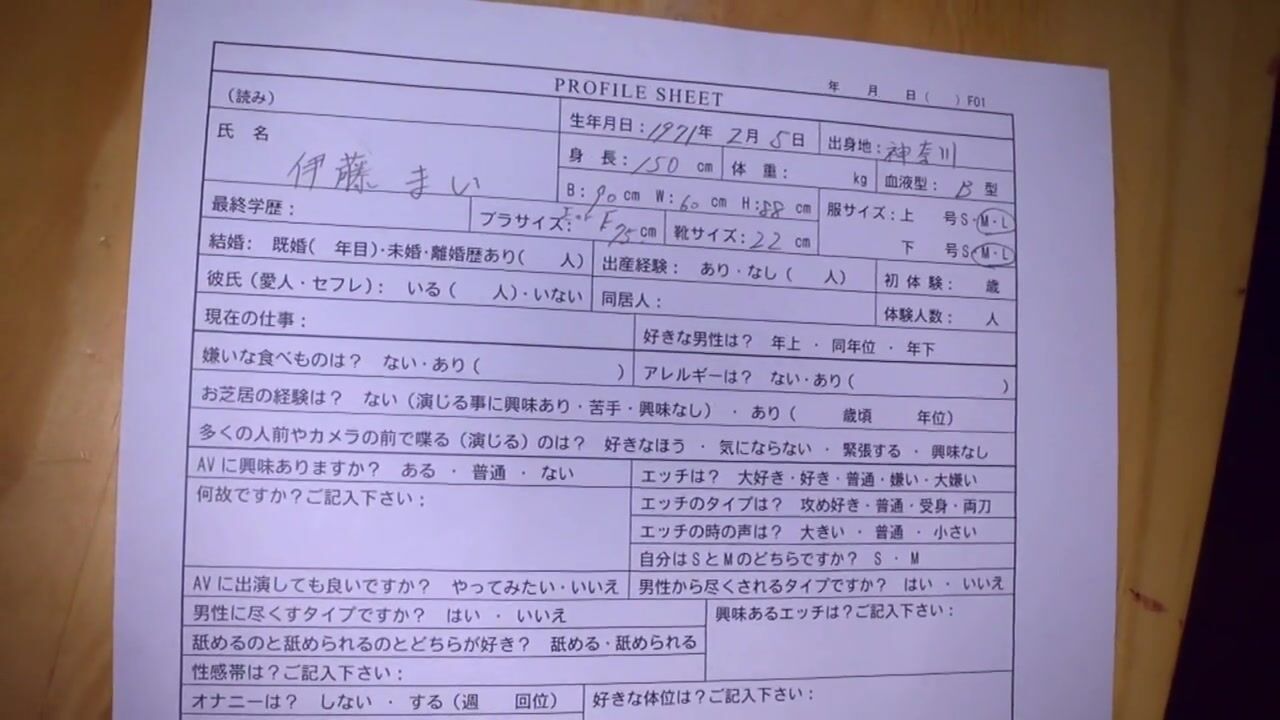 PROFILE SHEET
年 月 日( ) F01
(読み)
氏 名
伊藤 まい
生年月日:1971年 2月 5日
出身地:神奈川
身 長:150 cm
体 重: kg
血液型:B 型
B:90cm W:60 cm H:88 cm
服サイズ:上 号S・M・L
下 号S・M・L
最終学歴:
ブラサイズ: F 75cm
靴サイズ:22 cm
結婚: 既婚( 年目)・未婚・離婚歴あり( 人)
出産経験: あり・なし( 人)
初 体 験: 歳
彼氏(愛人・セフレ): いる( 人)・いない
同居人:
体験人数: 人
現在の仕事:
好きな男性は? 年上 ・ 同年位 ・ 年下
嫌いな食べものは? ない・あり( )
アレルギーは? ない・あり( )
お芝居の経験は? ない(演じる事に興味あり・苦手・興味なし) ・ あり( 歳頃 年位)
多くの人前やカメラの前で喋る(演じる)のは? 好きなほう ・ 気にならない ・ 緊張する ・ 興味なし
AVに興味ありますか? ある ・ 普通 ・ ない
エッチは? 大好き・好き・普通・嫌い・大嫌い
何故ですか?ご記入下さい:
エッチのタイプは? 攻め好き・普通・受身・両刀
エッチの時の声は? 大きい ・ 普通 ・ 小さい
自分はSとMのどちらですか? S ・ M
AVに出演しても良いですか? やってみたい・いいえ
男性から尽くされるタイプですか? はい ・ いいえ
男性に尽くすタイプですか? はい ・ いいえ
興味あるエッチは?ご記入下さい:
舐めるのと舐められるのとどちらが好き? 舐める・舐められる
性感帯は?ご記入下さい:
オナニーは? しない ・ する(週 回位)
好きな体位は?ご記入下さい: